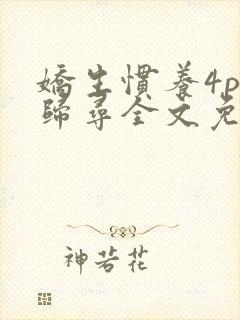 嬌生慣養4p
歸尋全文免
神若花